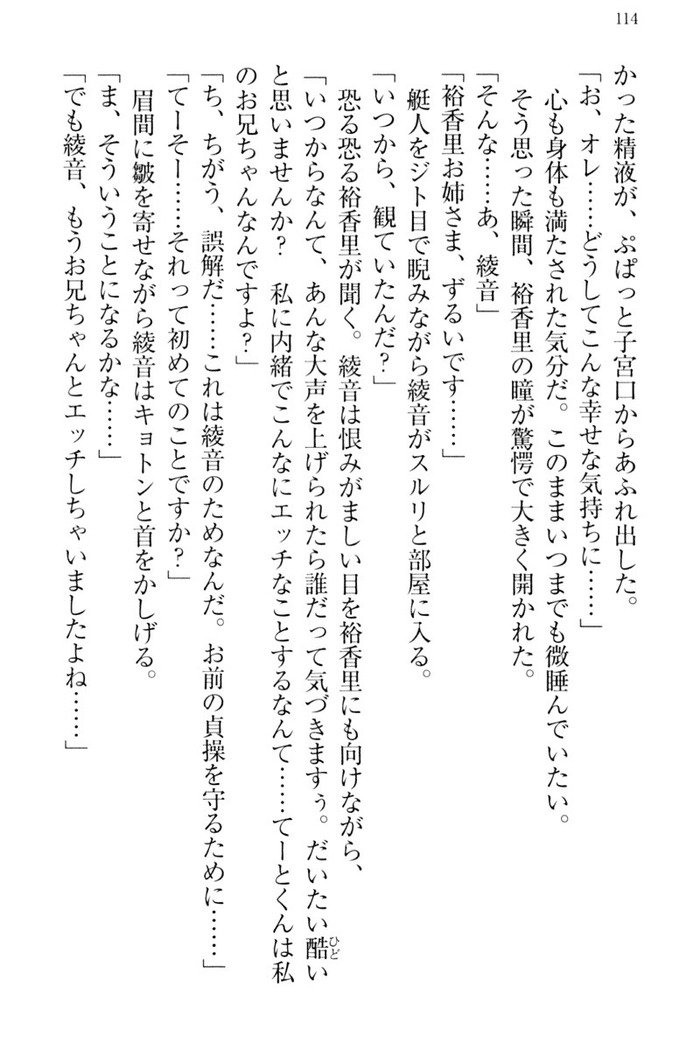 114
かった精液が、ぷぱっと子宮口からあふれ出した。
「お、オレ……どうしてこんな幸せな気持ちに……」
心も身体も満たされた気分だ。このままいつまでも微睡んでいたい。
そう思った瞬間、裕香里の瞳が驚愕で大きく開かれた。
「そんな……あ、綾音」
「裕香里お姉さま、ずるいです……」
艇人をジト目で睨みながら綾音がスルリと部屋に入る。
「いつから、観ていたんだ？」
恐る恐る裕香里が聞く。綾音は恨みがましい目を裕香里にも向けながら、
「いつからなんて、あんな大声を上げられたら誰だって気づきますぅ。だいたい酷ひどい
と思いませんか？　私に内緒でこんなにエッチなことするなんて……てーとくんは私
のお兄ちゃんなんですよ？」
「ち、ちがう、誤解だ……これは綾音のためなんだ。お前の貞操を守るために……」
「てーそー……それって初めてのことですか？」
眉間に皺を寄せながら綾音はキョトンと首をかしげる。
「ま、そういうことになるかな……」
「でも綾音、もうお兄ちゃんとエッチしちゃいましたよね……」